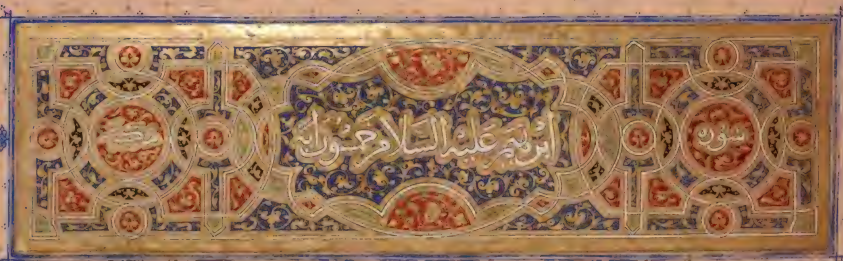 سورة ابرهيم عليه السلام خمسون اية مكية